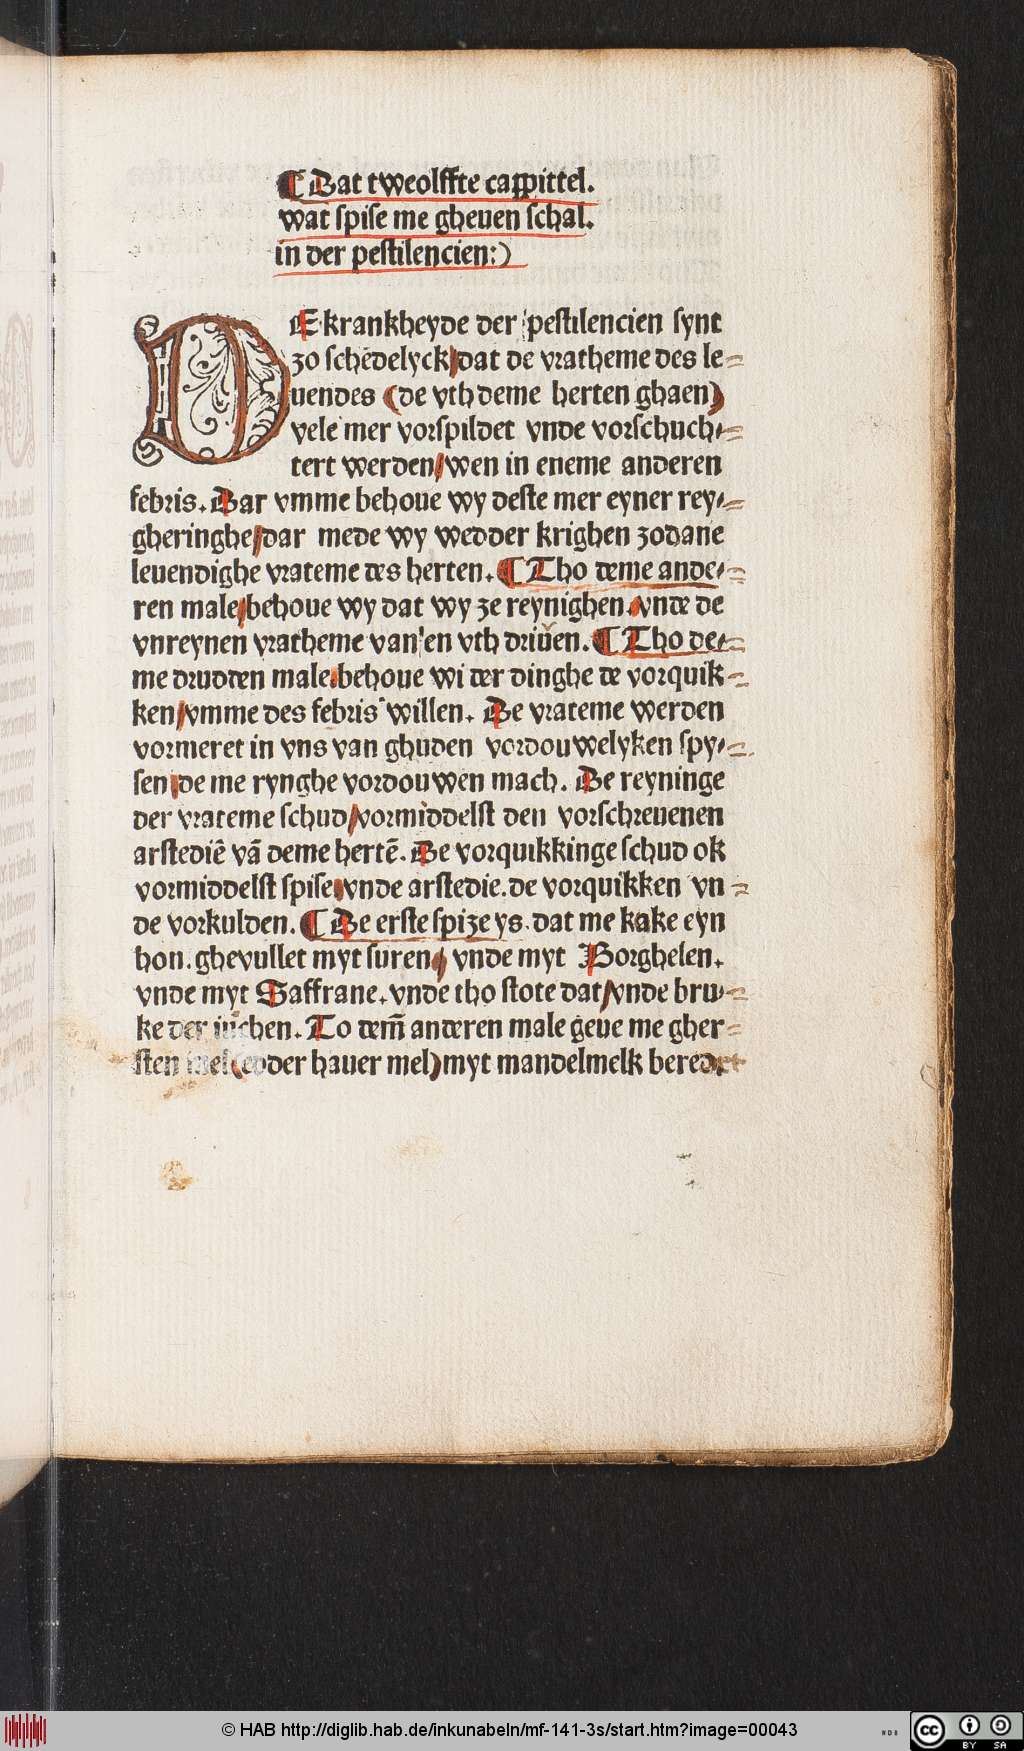 ¶ Dat tweolffte cappittel.
wat spise me gheuen schal.
in der pestilencien:)
DE krankheyde der pestilencien synt
zo schēdelyck/dat de vratheme des le⸗
uendes (de vth deme herten ghaen)
vele mer vorspildet vnde vorschuch⸗
tert werden/wen in eneme anderen
febris. Dar vmme behoue wy deste mer eyner rey⸗
gheringhe/dar mede wy wedder krighen zodane
leuendighe vrateme des herten. ¶ Tho deme ande⸗
ren male/behoue wy dat wy ze reynighen. vnde de
vnreynen vratheme van en vth driuen. ¶ Tho de⸗
me drudden male/behoue wi der dinghe de vorquik⸗
ken/vmme des febris willen. De vrateme werden
vormeret in vns van ghuden vordouwelyken spy⸗
sen/de me rynghe vordouwen mach. De reyninge
der vrateme schud/vormiddelst den vorschreuenen
arstediē vā deme hertē. De vorquikkinge schud ok
vormiddelst spise/vnde arstedie. de vorquikken vn⸗
de vorkulden. ¶ De erste spize ys. dat me kake eyn
hon. gheuullet myt suren/ vnde myt Borghelen.
vnde myt Saffrane. vnde tho stote dat/vnde bru⸗
ke der iuchen. To dem̄ anderen male geue me gher⸗
sten mel(edder hauer mel)myt mandelmelk beredet
© HAB http://diglib.hab.de/inkunabeln/mf-141-3s/start.htm?image=00043
WDB
cc
BY SA